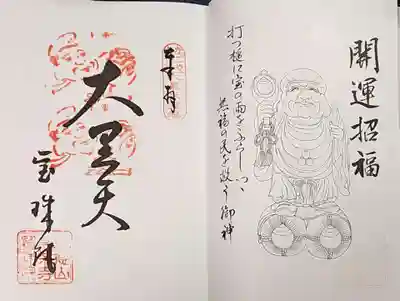 開運招福
打つ槌に宝の雨をふらしつゝ
無福の民を救う御神
奉拝
大黒天
宝珠院